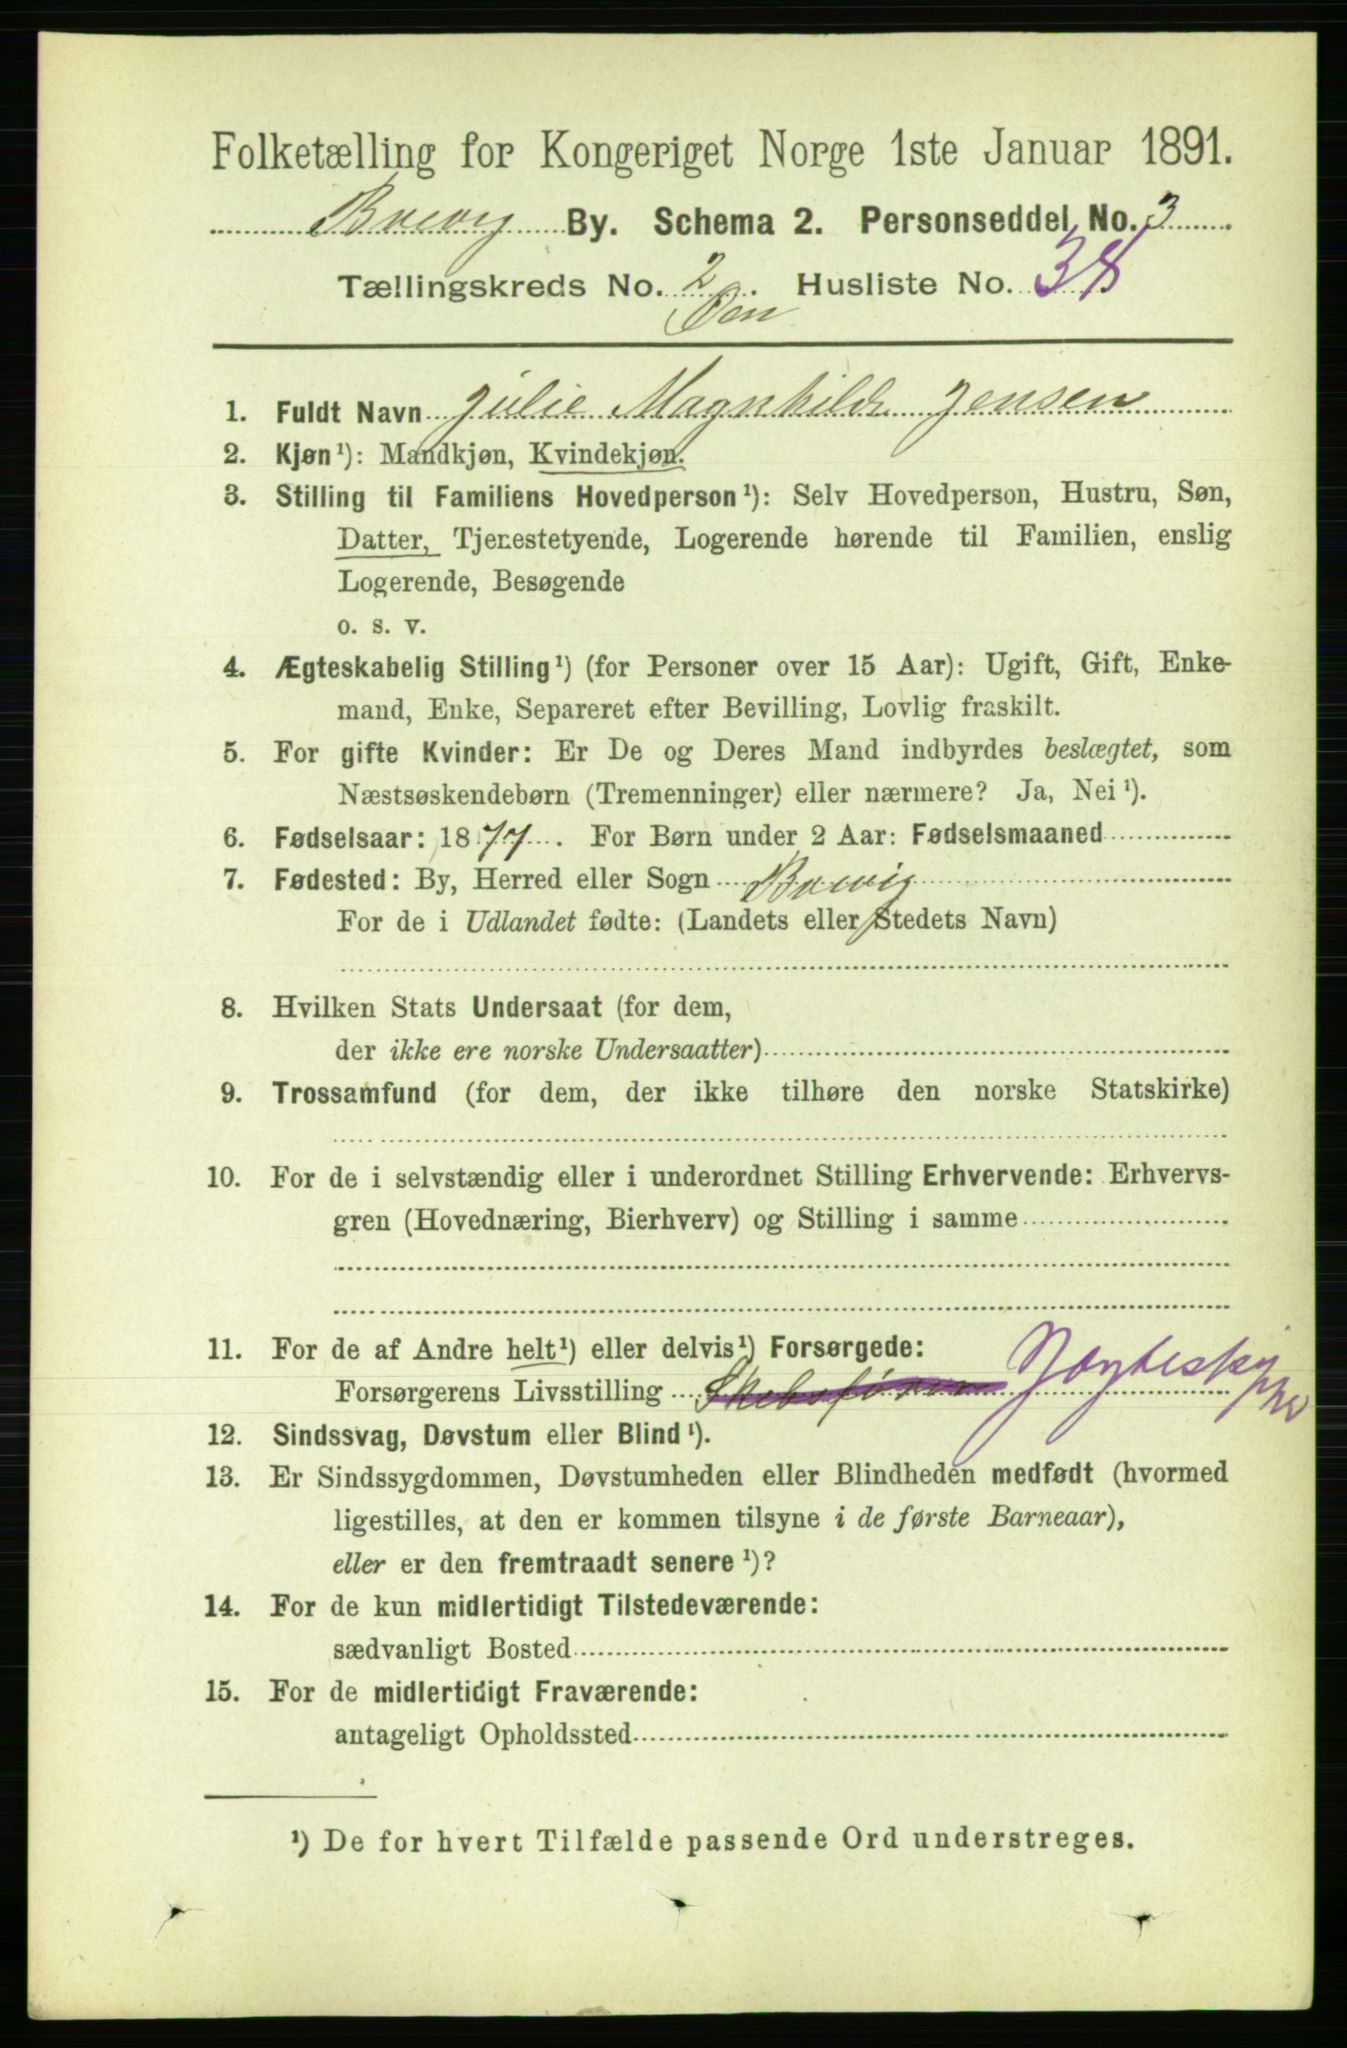 Folketælling for Kongeriget Norge 1ste Januar 1891.
Brevig By. Schema 2. Personseddel No. 3
Tællingskreds No. 2. Husliste No. 38
Øen
1. Fuldt Navn Julie Magnhilde Jensen
2. Kjøn¹): Mandkjøn, Kvindekjøn.
3. Stilling til Familiens Hovedperson¹): Selv Hovedperson, Hustru, Søn,
Datter, Tjenestetyende, Logerende hørende til Familien, enslig
Logerende, Besøgende
o. s. v.
4. Ægteskabelig Stilling¹) (for Personer over 15 Aar): Ugift, Gift, Enke-
mand, Enke, Separeret efter Bevilling, Lovlig fraskilt.
5. For gifte Kvinder: Er De og Deres Mand indbyrdes beslægtet, som
Næstsøskendebørn (Tremenninger) eller nærmere? Ja, Nei¹).
6. Fødselsaar: 1877. For Børn under 2 Aar: Fødselsmaaned
7. Fødested: By, Herred eller Sogn Brevig
For de i Udlandet fødte: (Landets eller Stedets Navn)
8. Hvilken Stats Undersaat (for dem,
der ikke ere norske Undersaatter)
9. Trossamfund (for dem, der ikke tilhøre den norske Statskirke)
10. For de i selvstændig eller i underordnet Stilling Erhvervende: Erhvervs-
gren (Hovednæring, Bierhverv) og Stilling i samme
11. For de af Andre helt¹) eller delvis¹) Forsørgede:
Forsørgerens Livsstilling Skibsfører Jagteskipper
12. Sindssvag, Døvstum eller Blind¹).
13. Er Sindssygdommen, Døvstumheden eller Blindheden medfødt (hvormed
ligestilles, at den er kommen tilsyne i de første Barneaar),
eller er den fremtraadt senere¹)?
14. For de kun midlertidigt Tilstedeværende:
sædvanligt Bosted
15. For de midlertidigt Fraværende:
antageligt Opholdssted
¹) De for hvert Tilfælde passende Ord understreges.